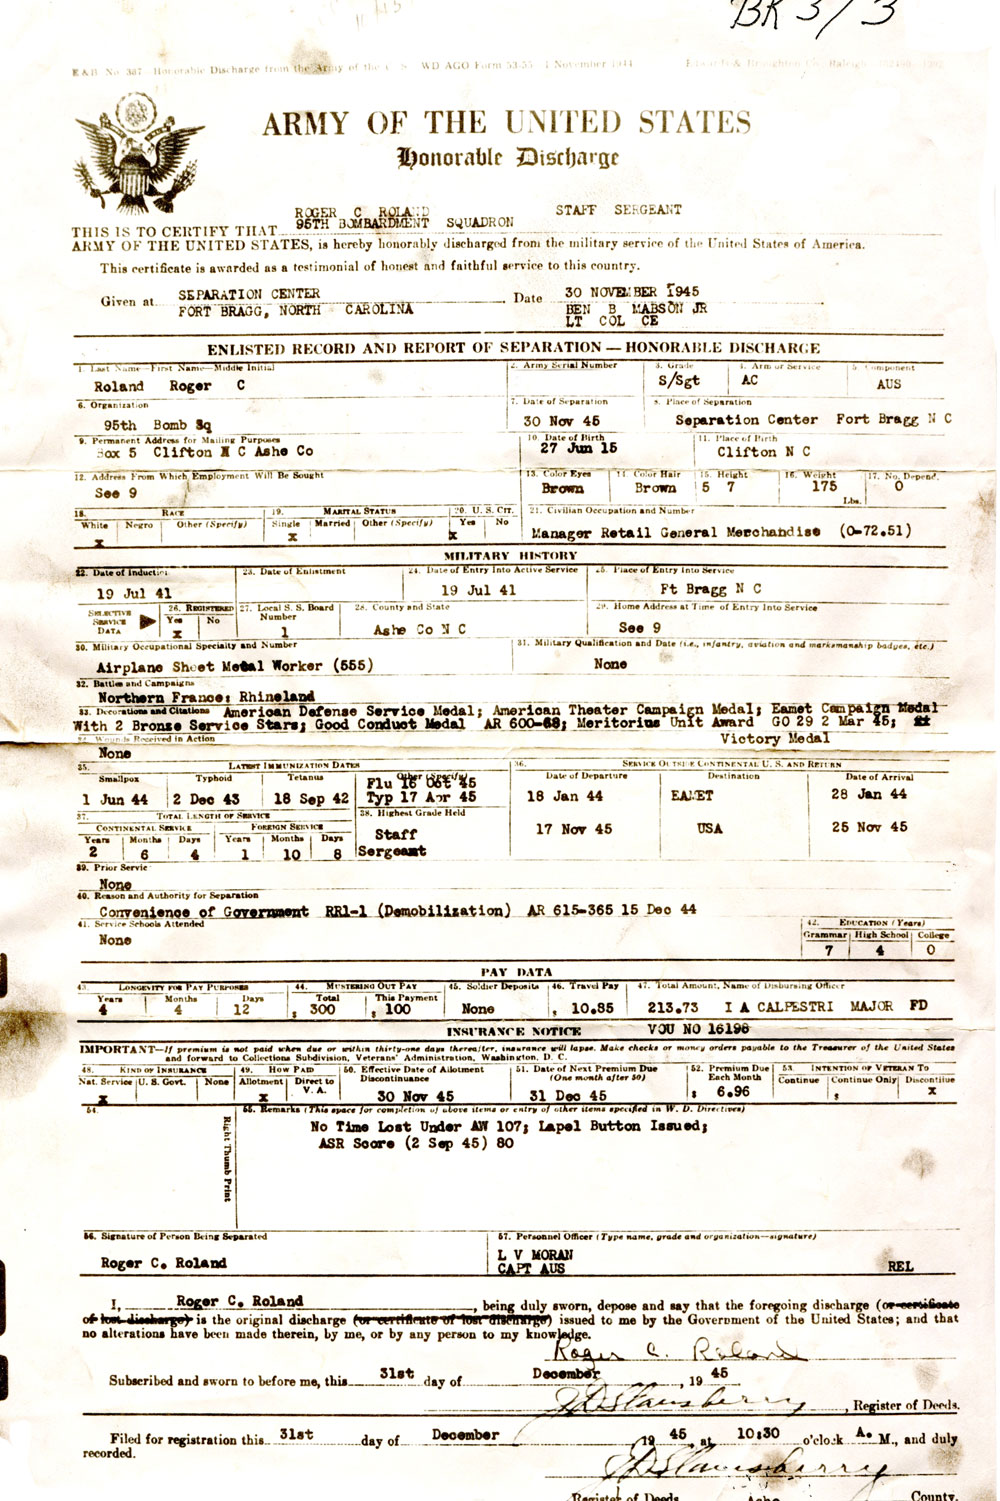 BK 3/3
E&B No 387 Honorable Discharge from the Army of the U S WD AGO Form 53-55 1 November 1944 Edwards & Broughton Co., Raleigh
ARMY OF THE UNITED STATES
Honorable Discharge
ROGER C ROLAND STAFF SERGEANT
95TH BOMBARDMENT SQUADRON
THIS IS TO CERTIFY THAT
ARMY OF THE UNITED STATES, is hereby honorably discharged from the military service of the United States of America.
This certificate is awarded as a testimonial of honest and faithful service to this country.
Given at SEPARATION CENTER Date 30 NOVEMBER 1945
FORT BRAGG, NORTH CAROLINA BEN B MABSON JR
LT COL CE
ENLISTED RECORD AND REPORT OF SEPARATION—HONORABLE DISCHARGE
1. Last Name—First Name—Middle Initial 2. Army Serial Number 3. Grade 4. Arm or Service 5. Component
Roland Roger C S/Sgt AC AUS
6. Organization 7. Date of Separation 8. Place of Separation
95th Bomb Sq 30 Nov 45 Separation Center Fort Bragg N C
9. Permanent Address for Mailing Purposes 10. Date of Birth 11. Place of Birth
Box 5 Clifton N C Ashe Co 27 Jun 15 Clifton N C
12. Address From Which Employment Will Be Sought 13. Color Eyes 14. Color Hair 15. Height 16. Weight 17. No. Depend.
See 9 Brown Brown 5 7 175 Lbs. 0
18. RACE 19. MARITAL STATUS 20. U. S. CIT. 21. Civilian Occupation and Number
White Negro Other (Specify) Single Married Other (Specify) Yes No
x x x Manager Retail General Merchandise (0-72.51)
MILITARY HISTORY
22. Date of Induction 23. Date of Enlistment 24. Date of Entry Into Active Service 25. Place of Entry Into Service
19 Jul 41 19 Jul 41 Ft Bragg N C
SELECTIVE SERVICE DATA 26. REGISTERED Yes No 27. Local S. S. Board Number 28. County and State 29. Home Address at Time of Entry Into Service
x 1 Ashe Co N C See 9
30. Military Occupational Specialty and Number 31. Military Qualification and Date (i.e., infantry, aviation and marksmanship badges, etc.)
Airplane Sheet Metal Worker (555) None
32. Battles and Campaigns
Northern France; Rhineland
33. Decorations and Citations American Defense Service Medal; American Theater Campaign Medal; Eamet Campaign Medal
With 2 Bronze Service Stars; Good Conduct Medal AR 600-68; Meritorius Unit Award GO 29 2 Mar 45;
34. Wounds Received in Action Victory Medal
None
35. LATEST IMMUNIZATION DATES 36. SERVICE OUTSIDE CONTINENTAL U. S. AND RETURN
Smallpox Typhoid Tetanus Other (Specify) Date of Departure Destination Date of Arrival
1 Jun 44 2 Dec 43 18 Sep 42 Flu 16 Oct 45 18 Jan 44 EAMET 28 Jan 44
Typ 17 Apr 45
37. TOTAL LENGTH OF SERVICE 38. Highest Grade Held
CONTINENTAL SERVICE FOREIGN SERVICE Staff 17 Nov 45 USA 25 Nov 45
Years Months Days Years Months Days
2 6 4 1 10 8 Sergeant
39. Prior Service
None
40. Reason and Authority for Separation
Convenience of Government RR1-1 (Demobilization) AR 615-365 15 Dec 44
41. Service Schools Attended 42. EDUCATION (Years)
None Grammar High School College
7 4 0
PAY DATA
43. LONGEVITY FOR PAY PURPOSES 44. MUSTERING OUT PAY 45. Soldier Deposits 46. Travel Pay 47. Total Amount, Name of Disbursing Officer
Years Months Days Total This Payment
4 4 12 $ 300 $ 100 None $ 10.85 213.73 I A CALPESTRI MAJOR FD
INSURANCE NOTICE VOU NO 16198
IMPORTANT—If premium is not paid when due or within thirty-one days thereafter, insurance will lapse. Make checks or money orders payable to the Treasurer of the United States
and forward to Collections Subdivision, Veterans' Administration, Washington, D. C.
48. KIND OF INSURANCE 49. HOW PAID 50. Effective Date of Allotment Discontinuance 51. Date of Next Premium Due (One month after 50) 52. Premium Due Each Month 53. INTENTION OF VETERAN TO
Nat. Service U. S. Govt. None Allotment Direct to V. A. Continue Continue Only Discontinue
x x 30 Nov 45 31 Dec 45 $ 6.96 $ x
54. 55. Remarks (This space for completion of above items or entry of other items specified in W. D. Directives)
No Time Lost Under AW 107; Lapel Button Issued;
ASR Score (2 Sep 45) 80
Right Thumb Print
56. Signature of Person Being Separated 57. Personnel Officer (Type name, grade and organization—signature)
Roger C. Roland L V MORAN
CAPT AUS REL
I, Roger C. Roland, being duly sworn, depose and say that the foregoing discharge (or certificate
of lost discharge) is the original discharge (or certificate of lost discharge) issued to me by the Government of the United States; and that
no alterations have been made therein, by me, or by any person to my knowledge.
Roger C. Roland
Subscribed and sworn to before me, this 31st day of December, 19 45
, Register of Deeds.
Filed for registration this 31st day of December 19 45 at 10:30 o'clock A. M., and duly
recorded.
Register of Deeds Ashe County.